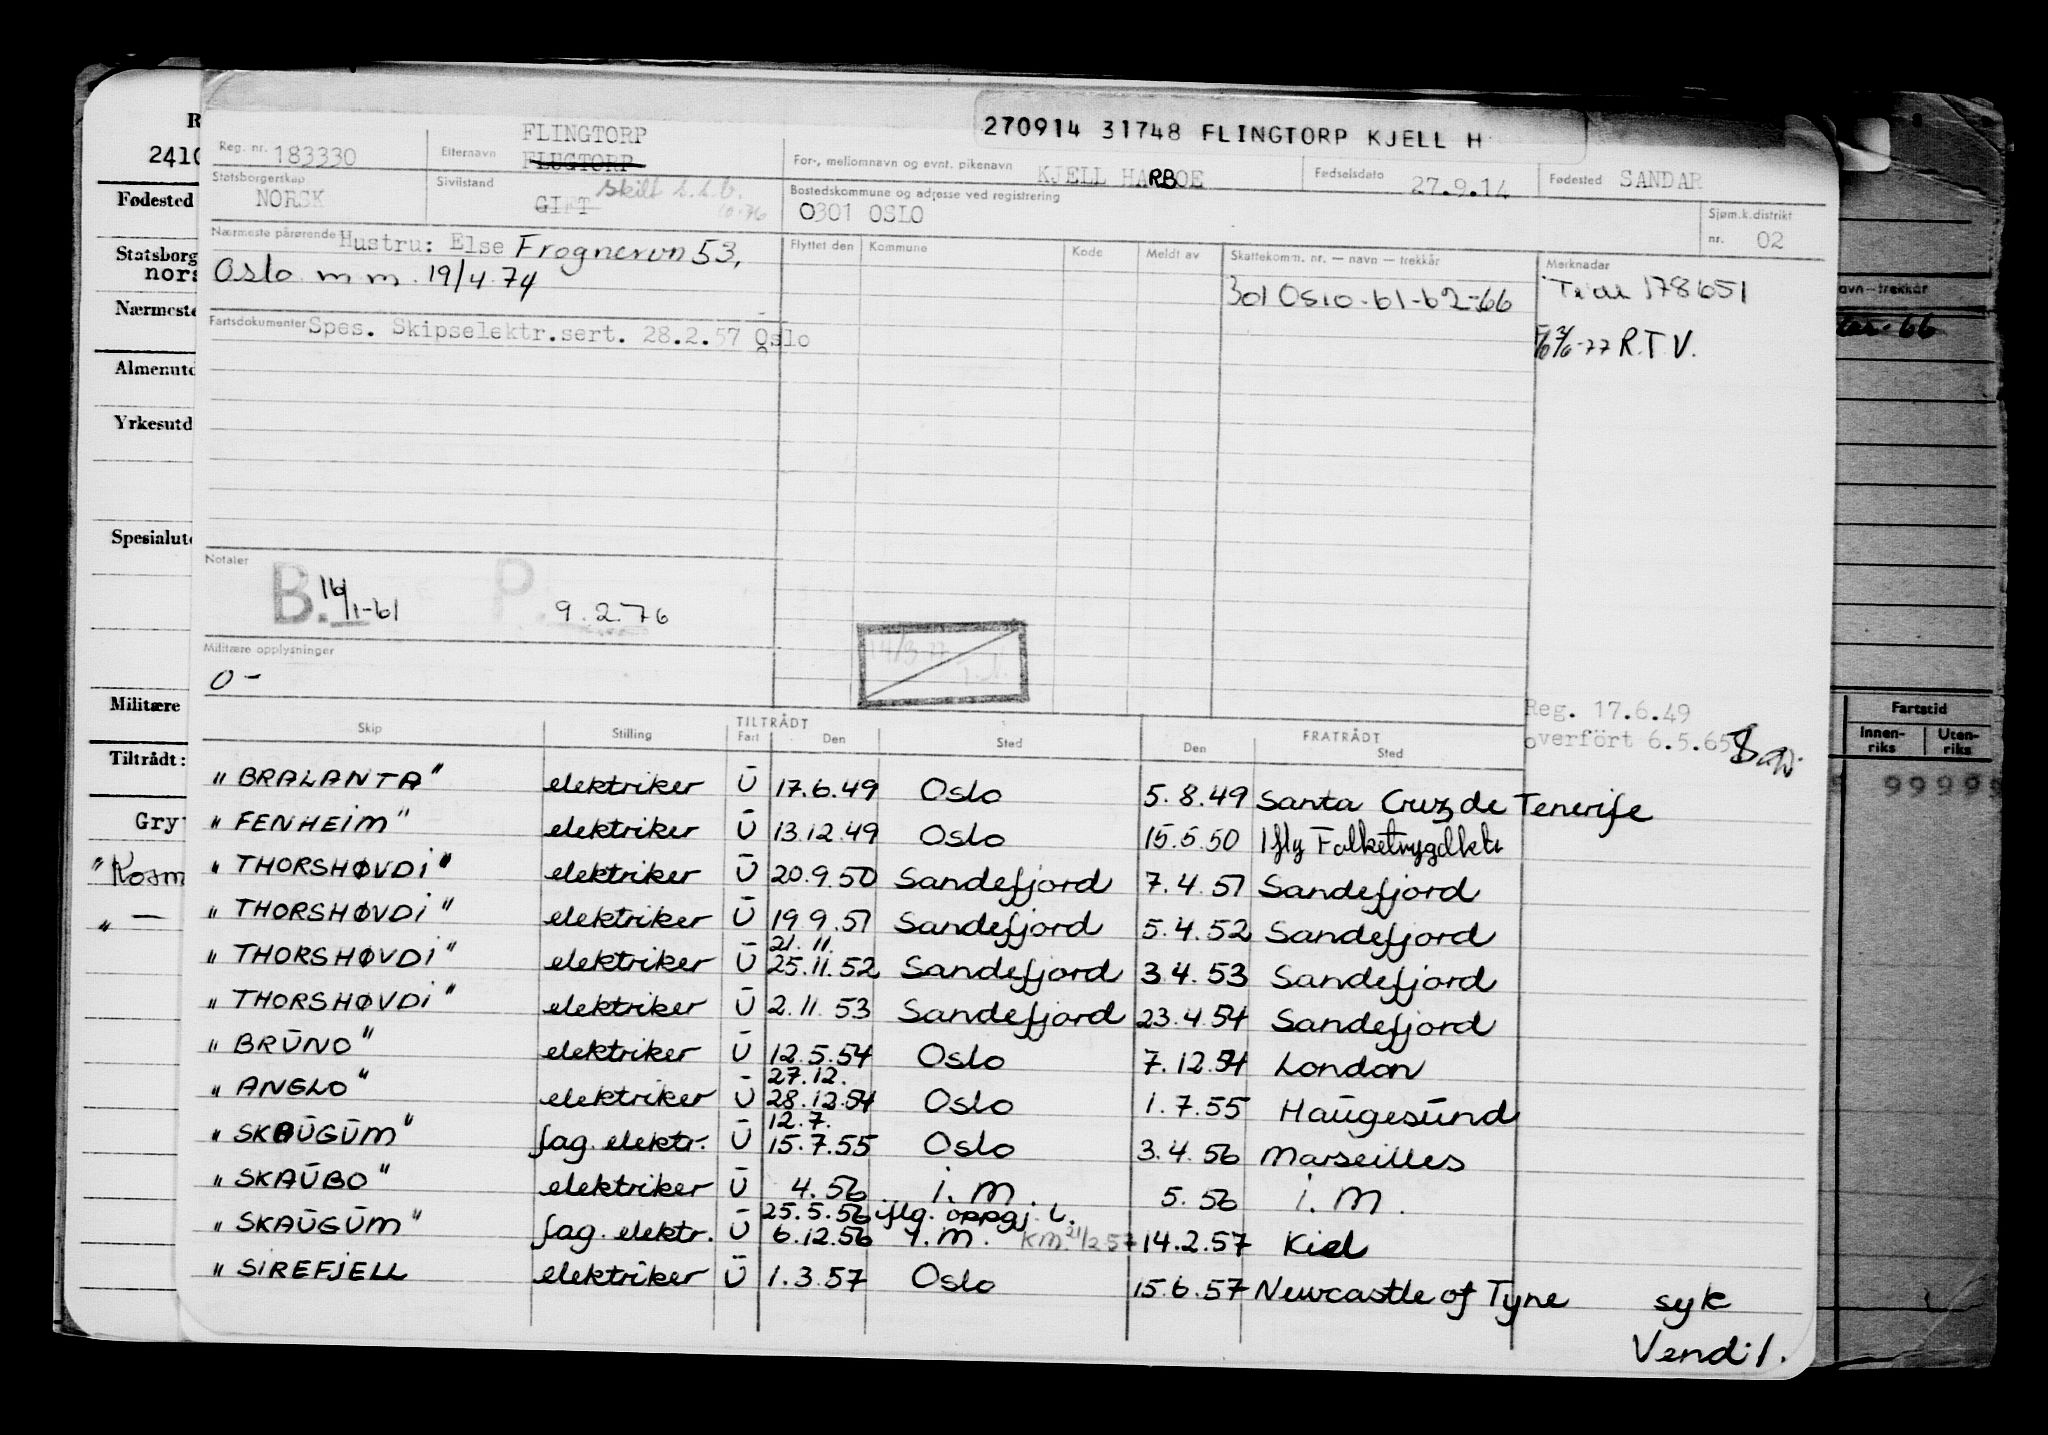 270914 31748 FLINGTORP KJELL H
Reg. nr. 183330 Etternavn FLINGTORP FLUGTORP For-, mellomnavn og evnt. pikenavn KJELL HARBOE Fødselsdato 27.9.14 Fødested SANDAR
Statsborgerskap NORSK Sivilstand GIFT Skilt Bostedskommune og adresse ved registrering 0301 OSLO Sjøm.k.distrikt nr. 02
Nærmeste pårørende Hustru: Else Frognervn 53,
Oslo m m. 19/4.74
Flyttet den Kommune Kode Meldt av Skattekomm. nr. — navn — trekkår Merknader
301 Oslo-61-62-66 178651
R.T.V.
Fartsdokumenter Spes. Skipselektr.sert. 28.2.57 Oslo
Notater
B. 16/1-61 P. 9.2.76
Militære opplysninger
0-
Reg. 17.6.49
overført 6.5.65
Skip Stilling TILTRÅDT Fart Den Sted FRATRÅDT Den Sted
"BRALANTA" elektriker U 17.6.49 Oslo 5.8.49 Santa Cruz de Tenerife
"FENHEIM" elektriker U 13.12.49 Oslo 15.5.50
"THORSHØVDI" elektriker U 20.9.50 Sandefjord 7.4.51 Sandefjord
"THORSHØVDI" elektriker U 19.9.51 Sandefjord 5.4.52 Sandefjord
21.11.
"THORSHØVDI" elektriker U 25.11.52 Sandefjord 3.4.53 Sandefjord
"THORSHØVDI" elektriker U 2.11.53 Sandefjord 23.4.54 Sandefjord
"BRUNO" elektriker U 12.5.54 Oslo 7.12.54 London
27.12.
"ANGLO" elektriker U 28.12.54 Oslo 1.7.55 Haugesund
12.7.
"SKAUGUM" fag. elektr. U 15.7.55 Oslo 3.4.56 Marseilles
"SKAUBO" elektriker U 4.56 i.M. 5.56 i.M.
25.5.56 iflg. oppgj.
"SKAUGUM" fag. elektr. U 6.12.56 i.M. 14.2.57 Kiel
"SIREFJELL elektriker U 1.3.57 Oslo 15.6.57 Newcastle of Tyne syk
Vend!.
2410
Fødested
Statsborg
nors
Nærmeste
Almenutd
Yrkesutd
Spesialutd
Militære
Tiltrådt:
Gry
"Kosm
" —
avn—trekkår
Fartstid
Innen-riks Uten-riks
99999